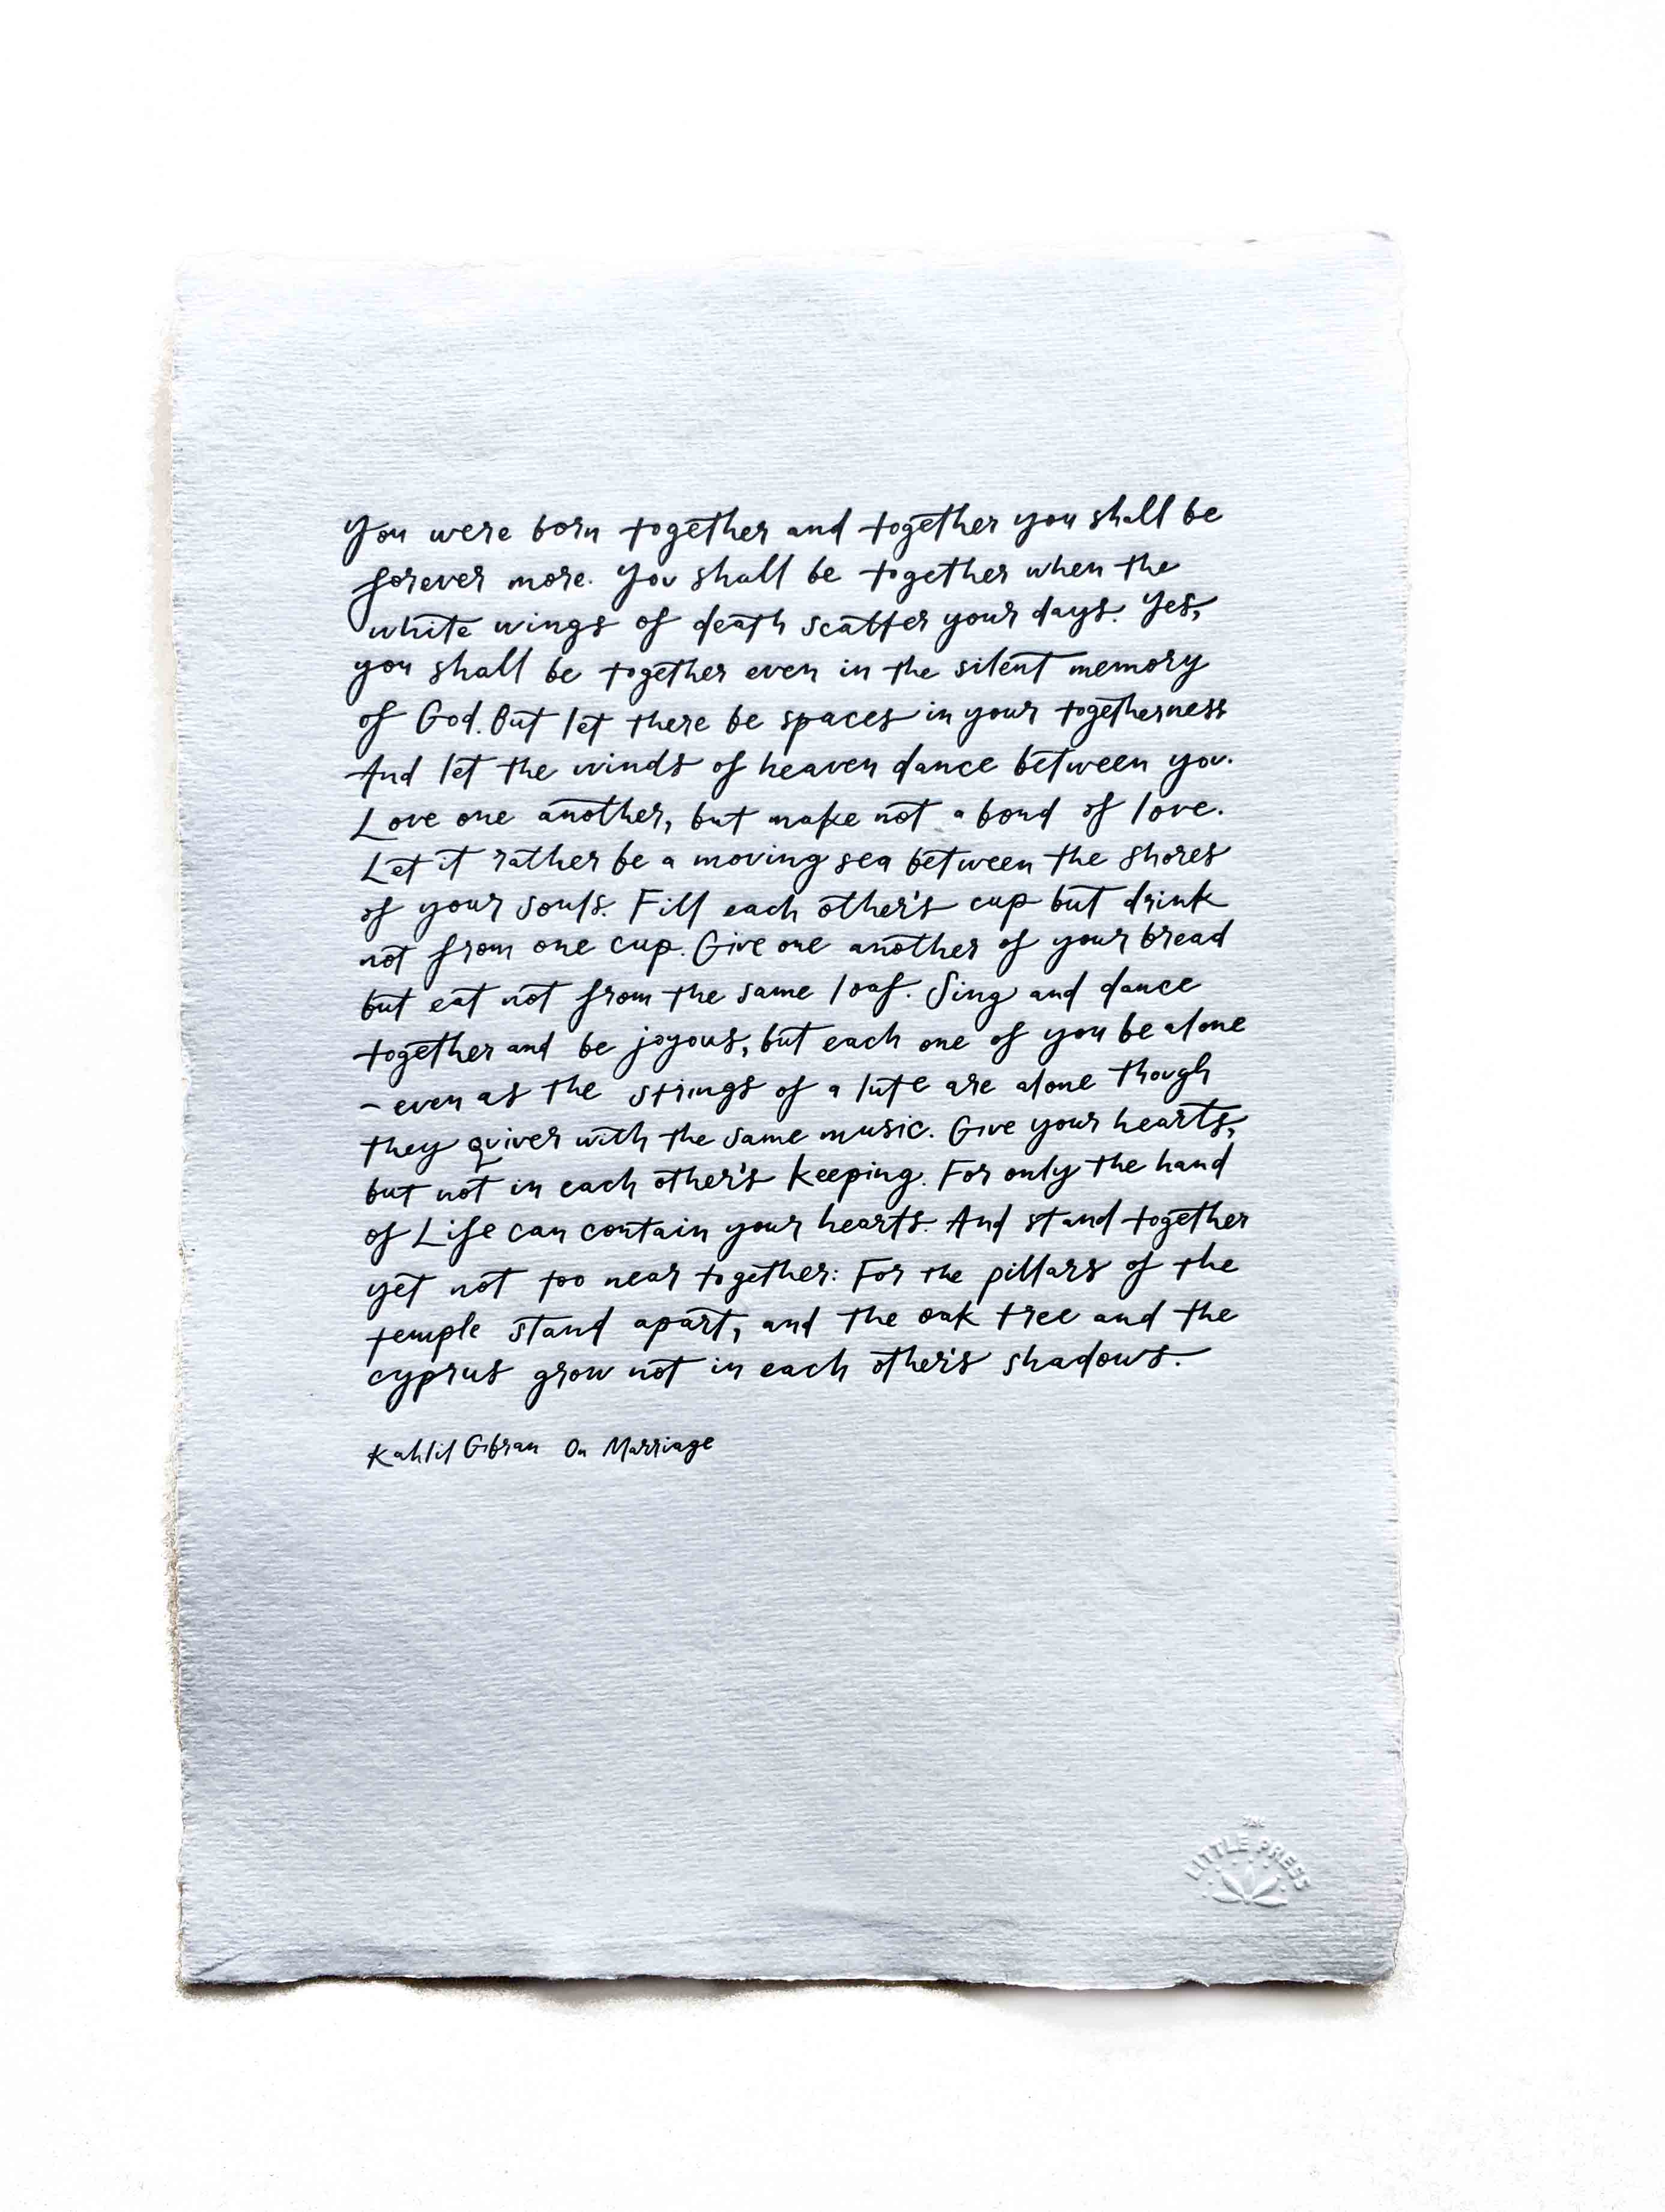 You were born together and together you shall be
forever more. You shall be together when the
white wings of death scatter your days. Yes,
you shall be together even in the silent memory
of God. But let there be spaces in your togetherness
And let the winds of heaven dance between you.
Love one another, but make not a bond of love.
Let it rather be a moving sea between the shores
of your souls. Fill each other's cup but drink
not from one cup. Give one another of your bread
but eat not from the same loaf. Sing and dance
together and be joyous, but each one of you be alone
- even as the strings of a lute are alone though
they quiver with the same music. Give your hearts,
but not in each other's keeping. For only the hand
of Life can contain your hearts. And stand together
yet not too near together: For the pillars of the
temple stand apart, and the oak tree and the
cyprus grow not in each other's shadows.
Kahlil Gibran On Marriage
THE
LITTLE PRESS